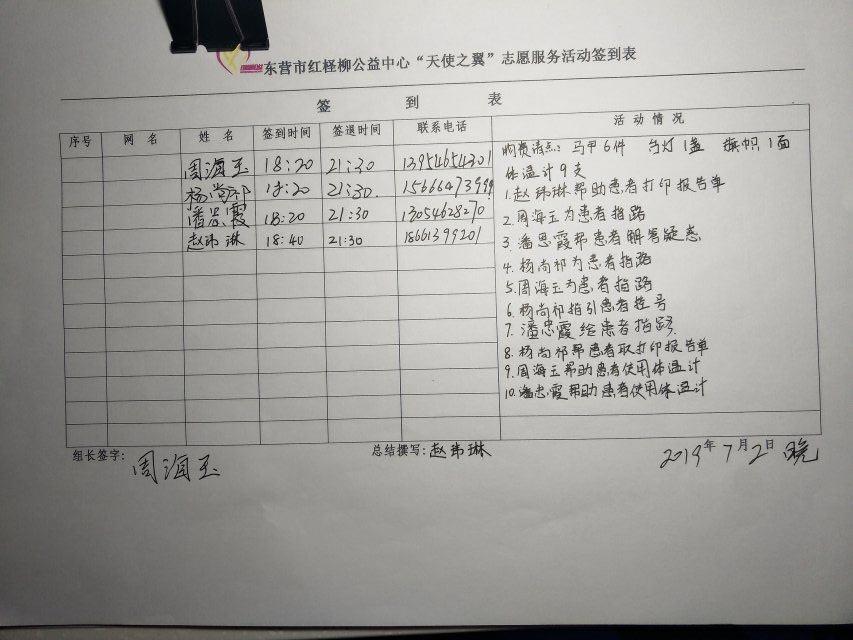 东营市红柽柳公益中心“天使之翼”志愿服务活动签到表
签 到 表
序号 网 名 姓 名 签到时间 签退时间 联系电话 活 动 情 况
周海玉 18:20 21:30 13954654301
杨尚祁 18:20 21:30 1566647399
潘忠霞 18:20 21:30 13054628270
赵玮琳 18:40 21:30 18661399201
物资清点: 马甲6件 台灯1盏 旗帜1面
体温计9支
1.赵玮琳帮助患者打印报告单
2.周海玉为患者指路
3.潘忠霞帮患者解答疑惑
4.杨尚祁为患者指路
5.周海玉为患者指路
6.杨尚祁指引患者挂号
7.潘忠霞给患者指路
8.杨尚祁帮患者取打印报告单
9.周海玉帮助患者使用体温计
10.潘忠霞帮助患者使用体温计
组长签字: 周海玉 总结撰写:赵玮琳 2019年7月2日 晚